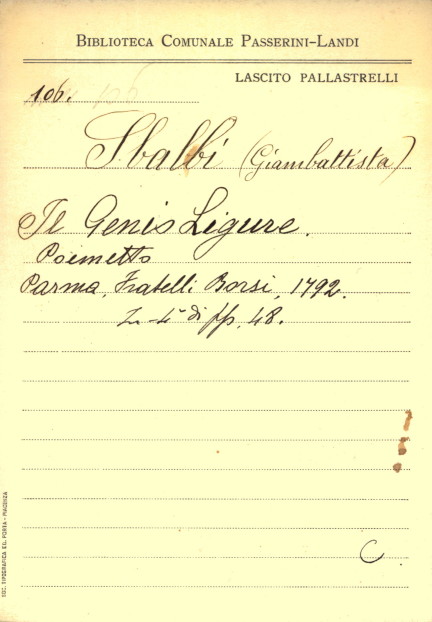 BIBLIOTECA COMUNALE PASSERINI-LANDI
LASCITO PALLASTRELLI
106.
Sbalbi (Giambattista)
Il Genio Ligure.
Poemetto
Parma, Fratelli Borsi, 1792.
In-4° di pp. 48.
C
SOC. TIPOGRAFICA ED. PORTA - PIACENZA